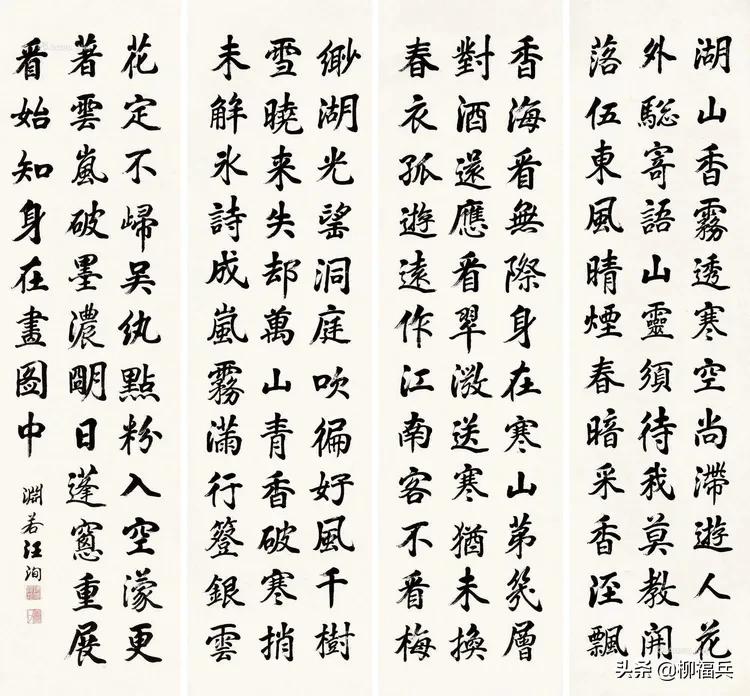 湖山香霧透寒空尚滯遊人花
外驄寄語山靈須待我莫教開
落伍東風晴煙春暗采香涇飄
香海看無際身在寒山第幾層
對酒還應看翠微送寒猶未換
春衣孤遊遠作江南客不看梅
緲湖光望洞庭吹徧好風千樹
雪曉来失却萬山青香破寒捎
未解氷詩成嵐霧滿行簦銀雲
花定不歸吳紈點粉入空濛更
著雲嵐破墨濃眀日蓬窻重展
看始知身在畫圖中
淵若汪洵
头条 @柳福兵